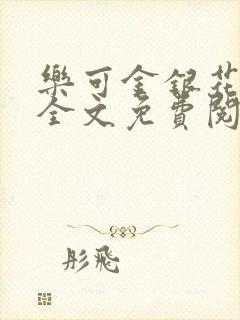 樂可金銀花
全文免費閱
彤飛